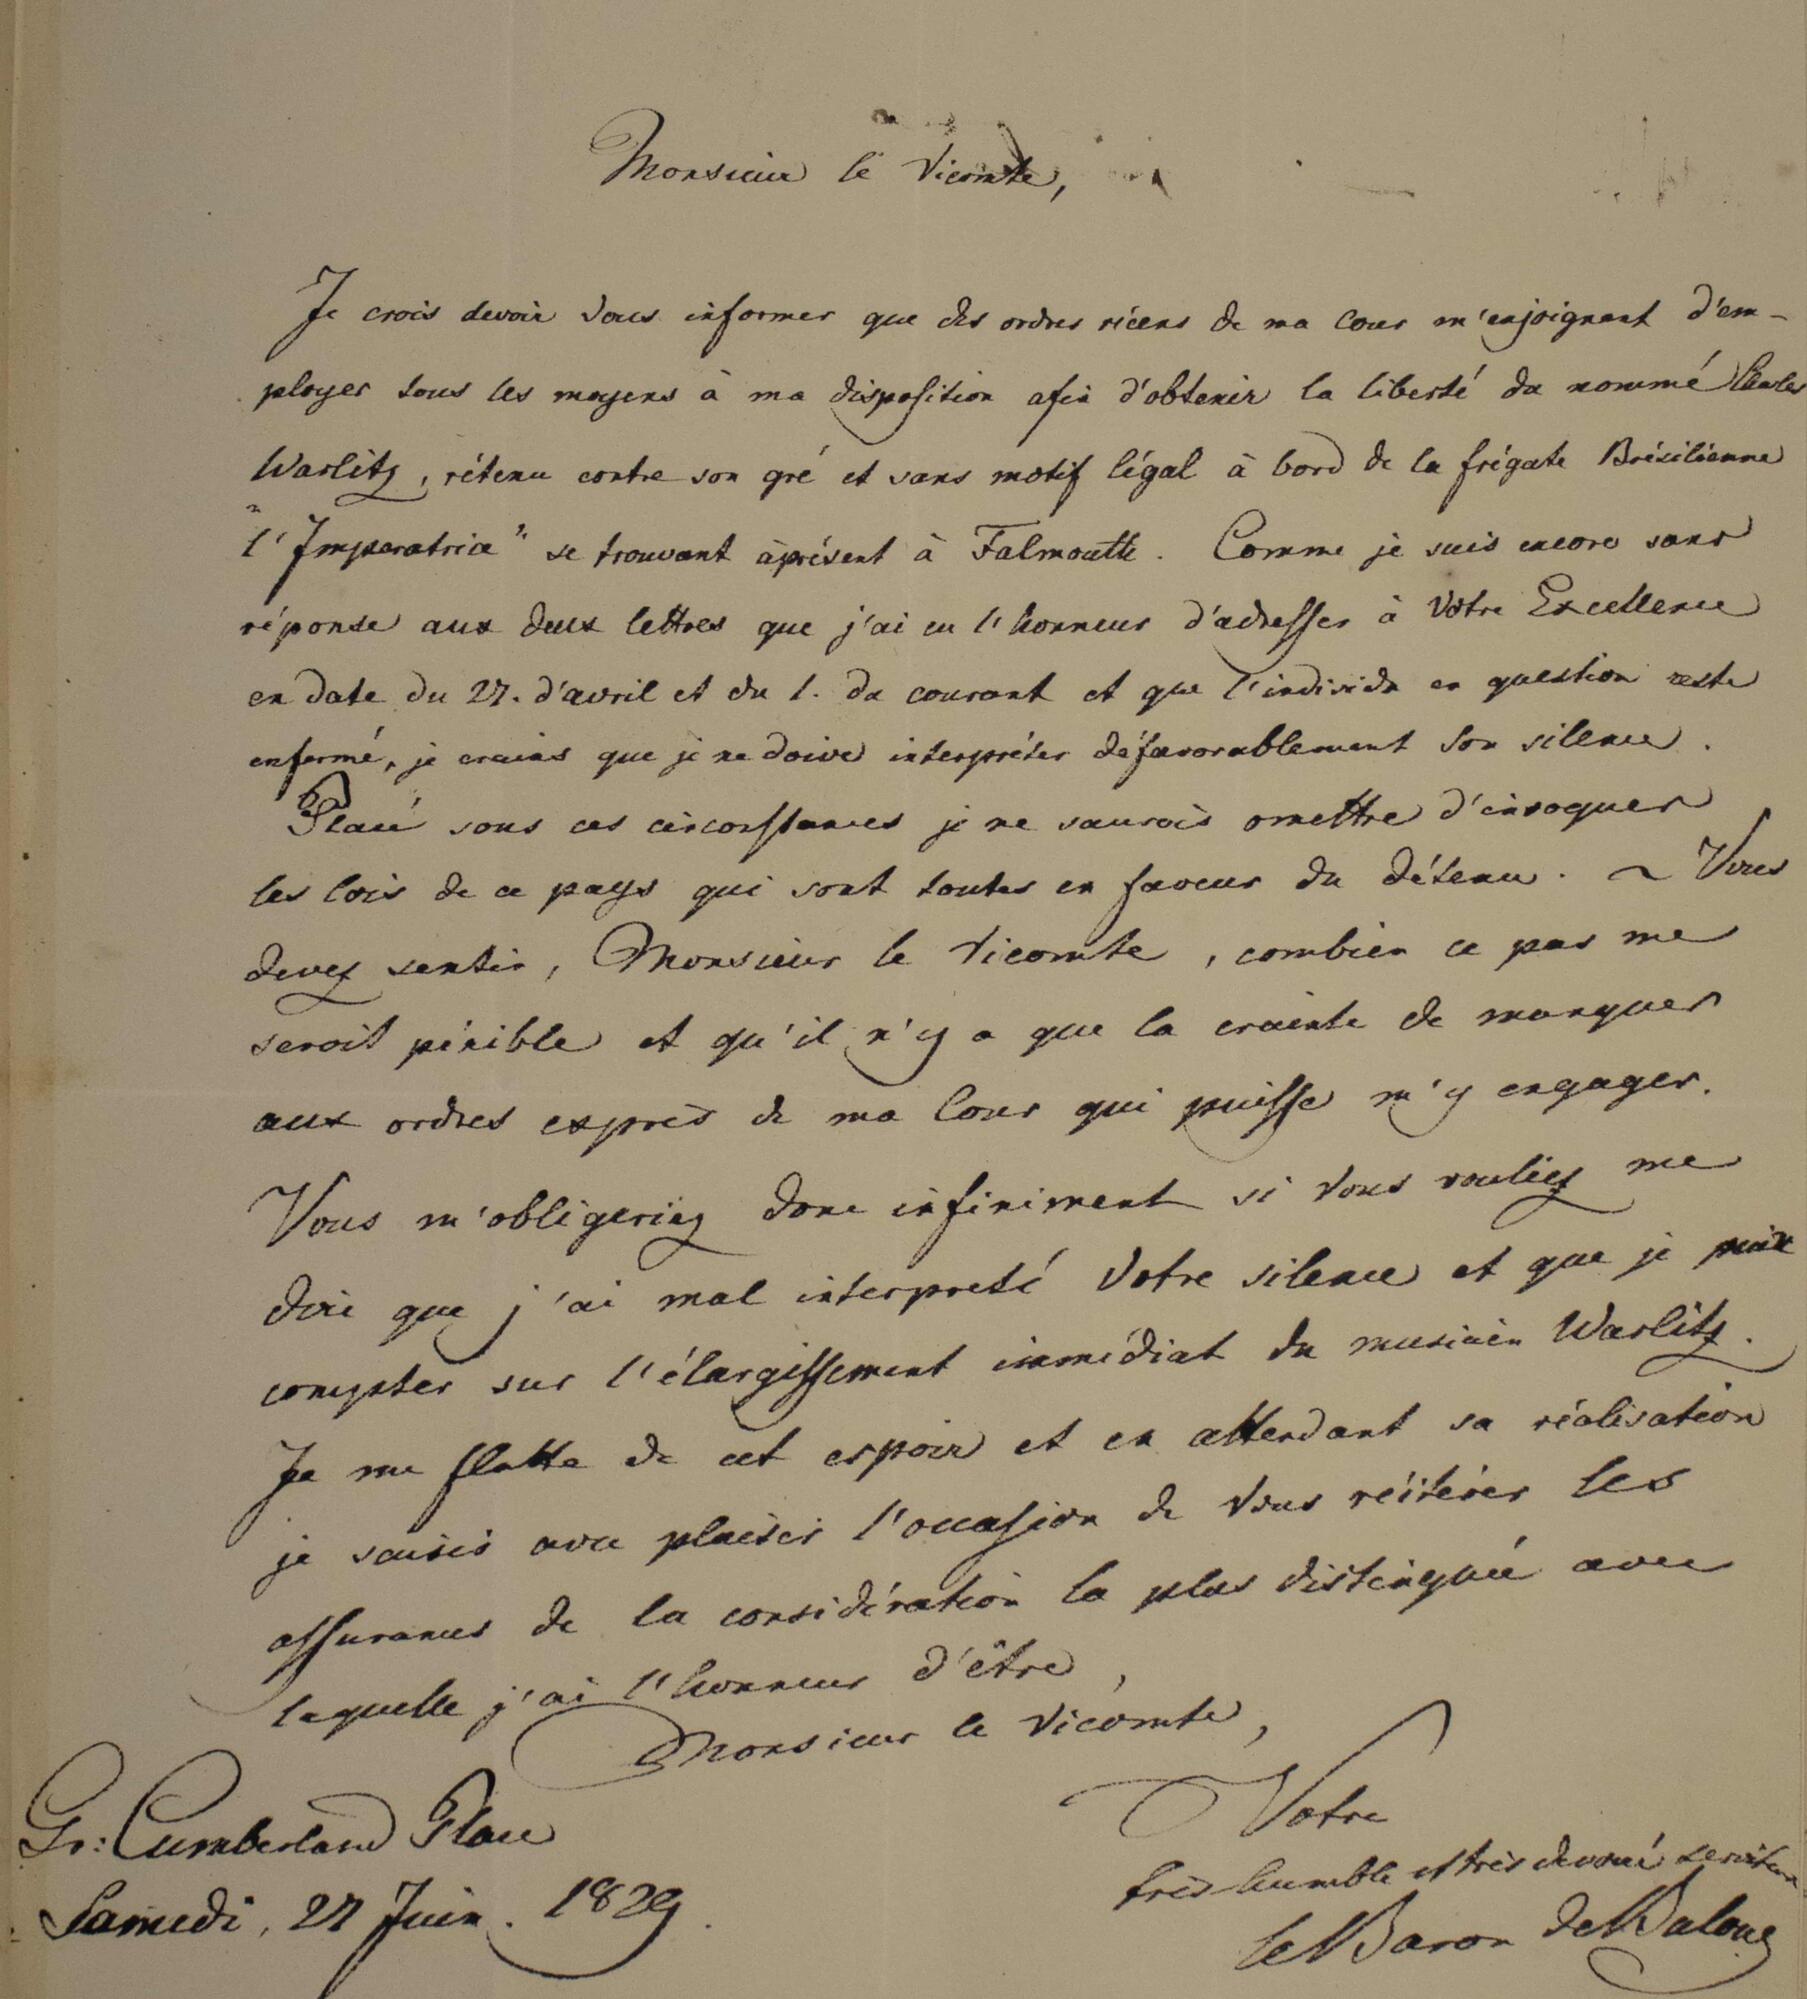 Monsieur le Vicomte,
Je crois devoir Vous informer que des ordres récens de ma Cour m'enjoignent d'em-
ployer tous les moyens à ma disposition afin d'obtenir la liberté du nommé Charles
Warlitz, rétenu contre son gré et sans motif légal à bord de la frégate Brésilienne
"l'Imperatrice" se trouvant àprésent à Falmouth. Comme je suis encore sans
réponse aux deux lettres que j'ai eu l'honneur d'adresser à Votre Excellence
en date du 27. d'avril et du 1. du courant et que l'individu en question reste
enfermé, je crains que je ne doive interpréter défavorablement Son silence.
Placé sous ces circonstances je ne saurois omettre d'invoquer
les lois de ce pays qui sont toutes en faveur du détenu. ~ Vous
devez sentir, Monsieur le Vicomte, combien ce pas me
seroit pénible et qu'il n'y a que la crainte de manquer
aux ordres exprès de ma Cour qui puisse m'y engager.
Vous m'obligeriez donc infiniment si Vous vouliez me
dire que j'ai mal interpreté Votre silence et que je puis
compter sur l'élargissement immédiat du musicien Warlitz.
Je me flatte de cet espoir et en attendant sa réalisation
je saisis avec plaisir l'occasion de Vous réitérer les
assurances de la considération la plus distinguée avec
laquelle j'ai l'honneur d'être,
Monsieur le Vicomte,
Votre
très humble et très dévoué serviteur
le Baron de
Gr: Cumberland Place
Samedi, 27 Juin. 1829.